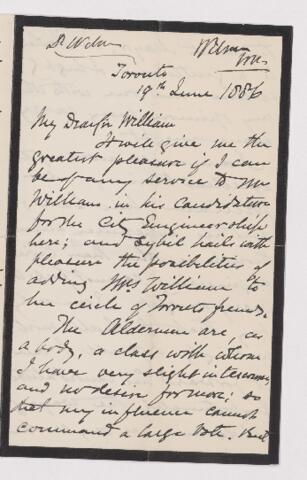 Dr Wilson
Wilson
Toronto
19th June 1886
My Dear Sir William
It will give me the
greatest pleasure if I can
be of any service to Mr
William in his candidature
for the City Engineership
here; and Sybil hails with
pleasure the possibilities of
adding Mrs William to
her circle of Toronto friends.
The Aldermen are, as
a body, a class with whom
I have very slight intercourse,
and no desire for more; so
that my influence cannot
command a large vote. But